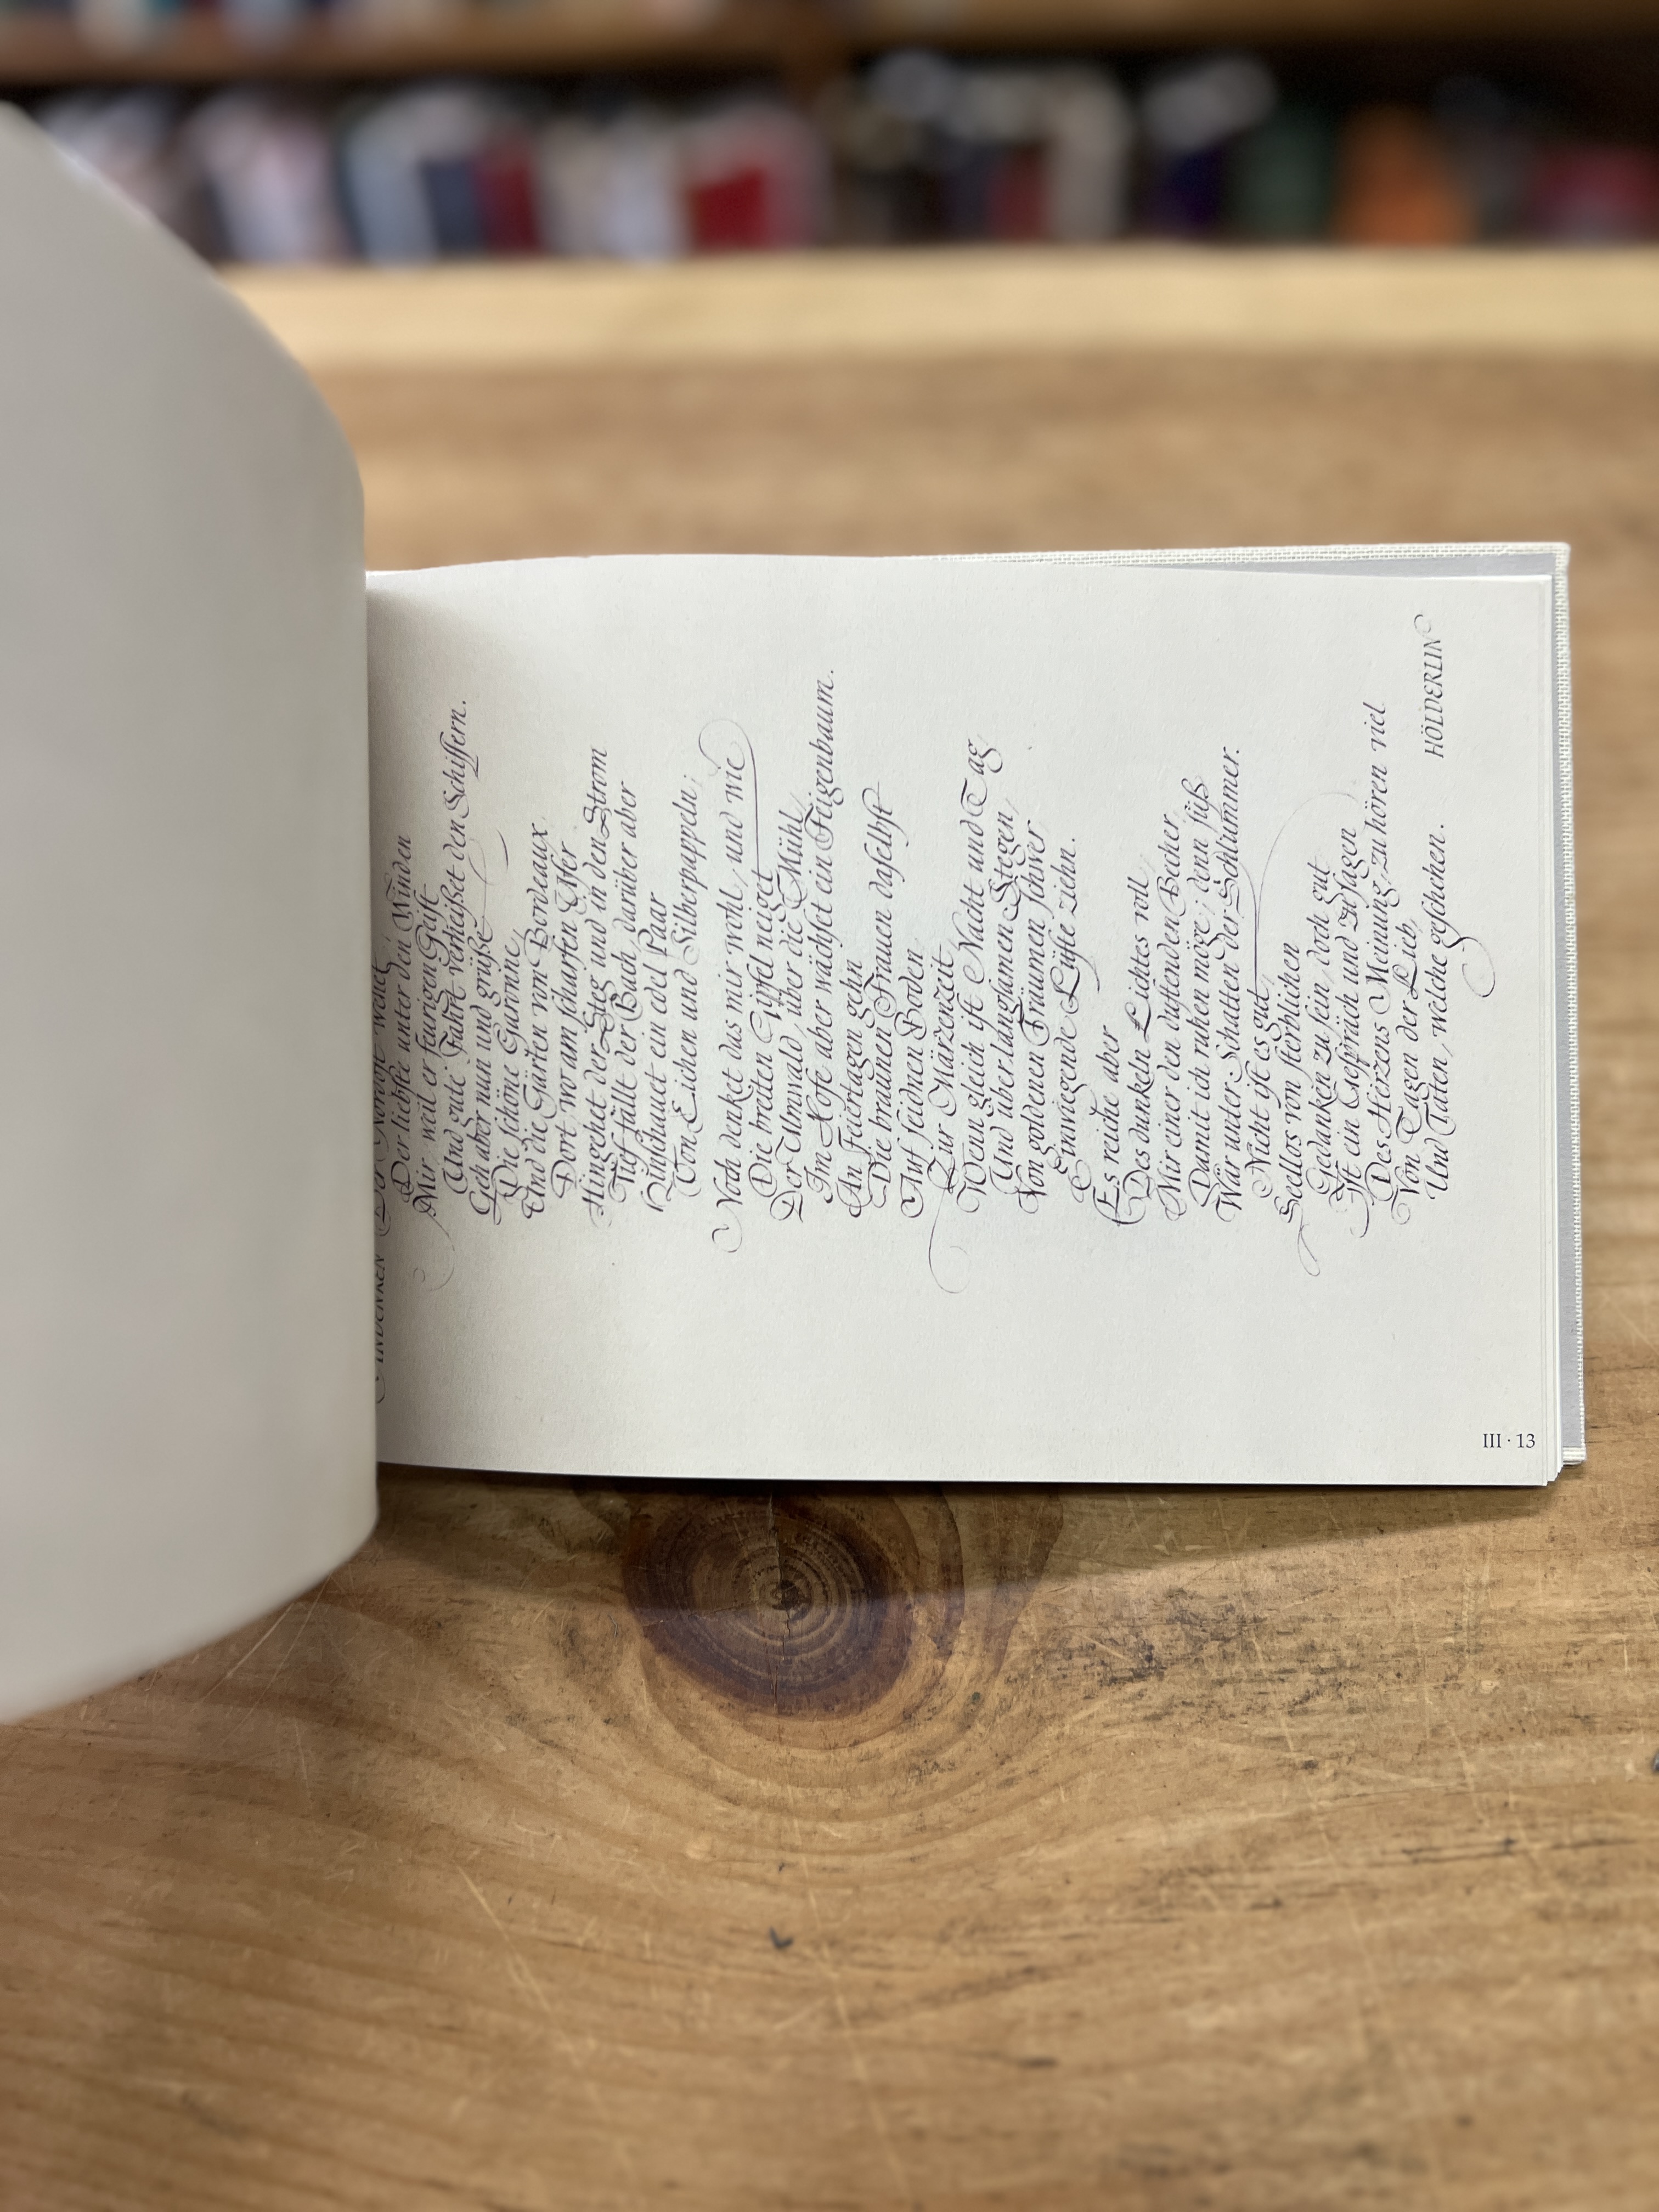 ANDENKEN Der Nordost wehet,
Der liebste unter den Winden
Mir, weil er feurigen Geist
Und gute Fahrt verheißet den Schiffern.
Geh aber nun und grüße
Die schöne Garonne,
Und die Gärten von Bordeaux
Dort, wo am scharfen Ufer
Hingehet der Steg und in den Strom
Tief fällt der Bach, darüber aber
Hinschauet ein edel Paar
Von Eichen und Silberpappeln;
Noch denket das mir wohl, und wie
Die breiten Gipfel neiget
Der Ulmwald, über die Mühl,
Im Hofe aber wächset ein Feigenbaum.
An Feiertagen gehn
Die braunen Frauen daselbst
Auf seidnen Boden
Zur Märzenzeit,
Wenn gleich ist Nacht und Tag
Und über langsamen Stegen,
Von goldenen Träumen schwer
Einwiegende Lüfte ziehn.
Es reiche aber
Des dunkeln Lichtes voll
Mir einer den duftenden Becher,
Damit ich ruhen möge; denn süß
Wär unter Schatten der Schlummer.
Nicht ist es gut,
Seellos von sterblichen
Gedanken zu sein, doch gut
Ist ein Gespräch und zu sagen
Des Herzens Meinung, zu hören viel
Von Tagen der Lieb,
Und Taten, welche geschehen.
HÖLDERLIN
III · 13